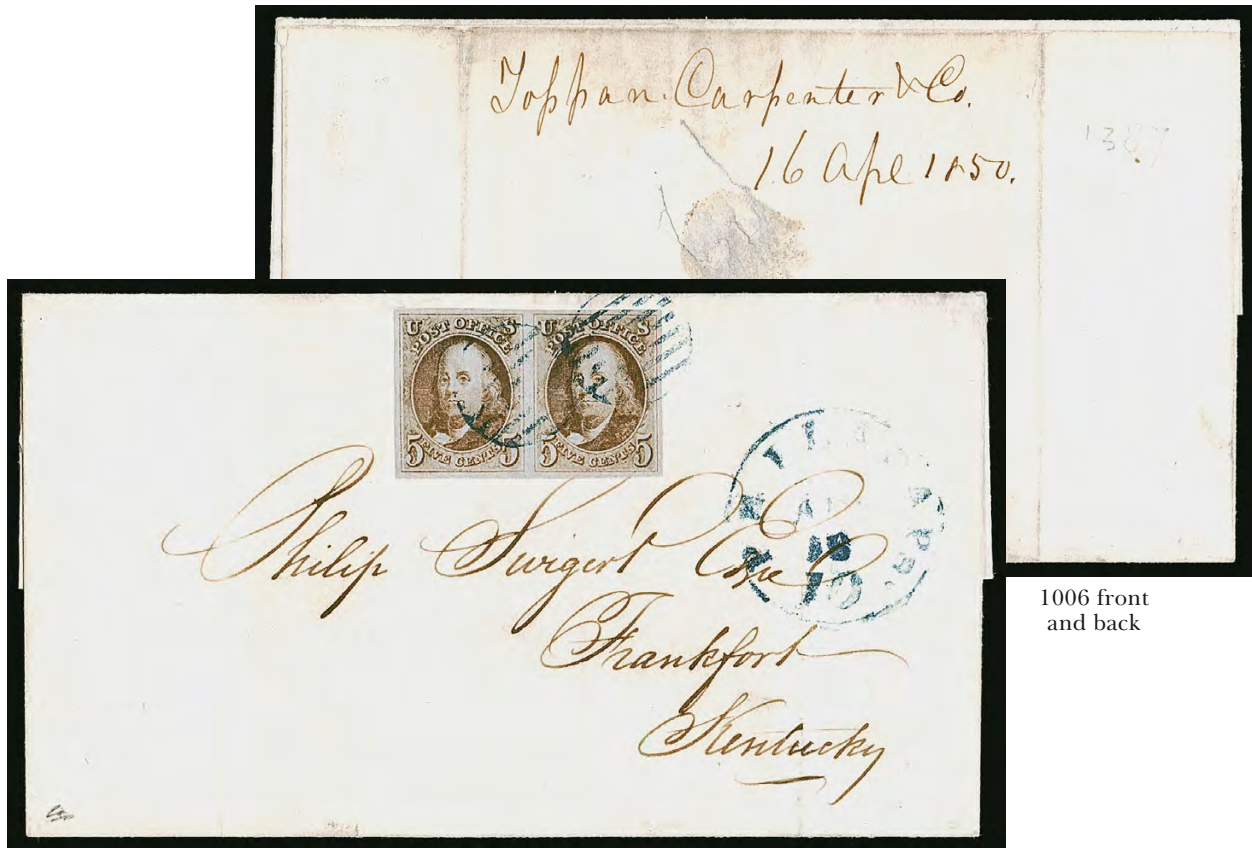 Toppan Carpenter & Co.
16 Apl 1850.
1387
U S
POST OFFICE
5 FIVE CENTS 5
U S
POST OFFICE
5 FIVE CENTS 5
10
Philip Swigert Esqe
Frankfort
Kentucky
1006 front
and back